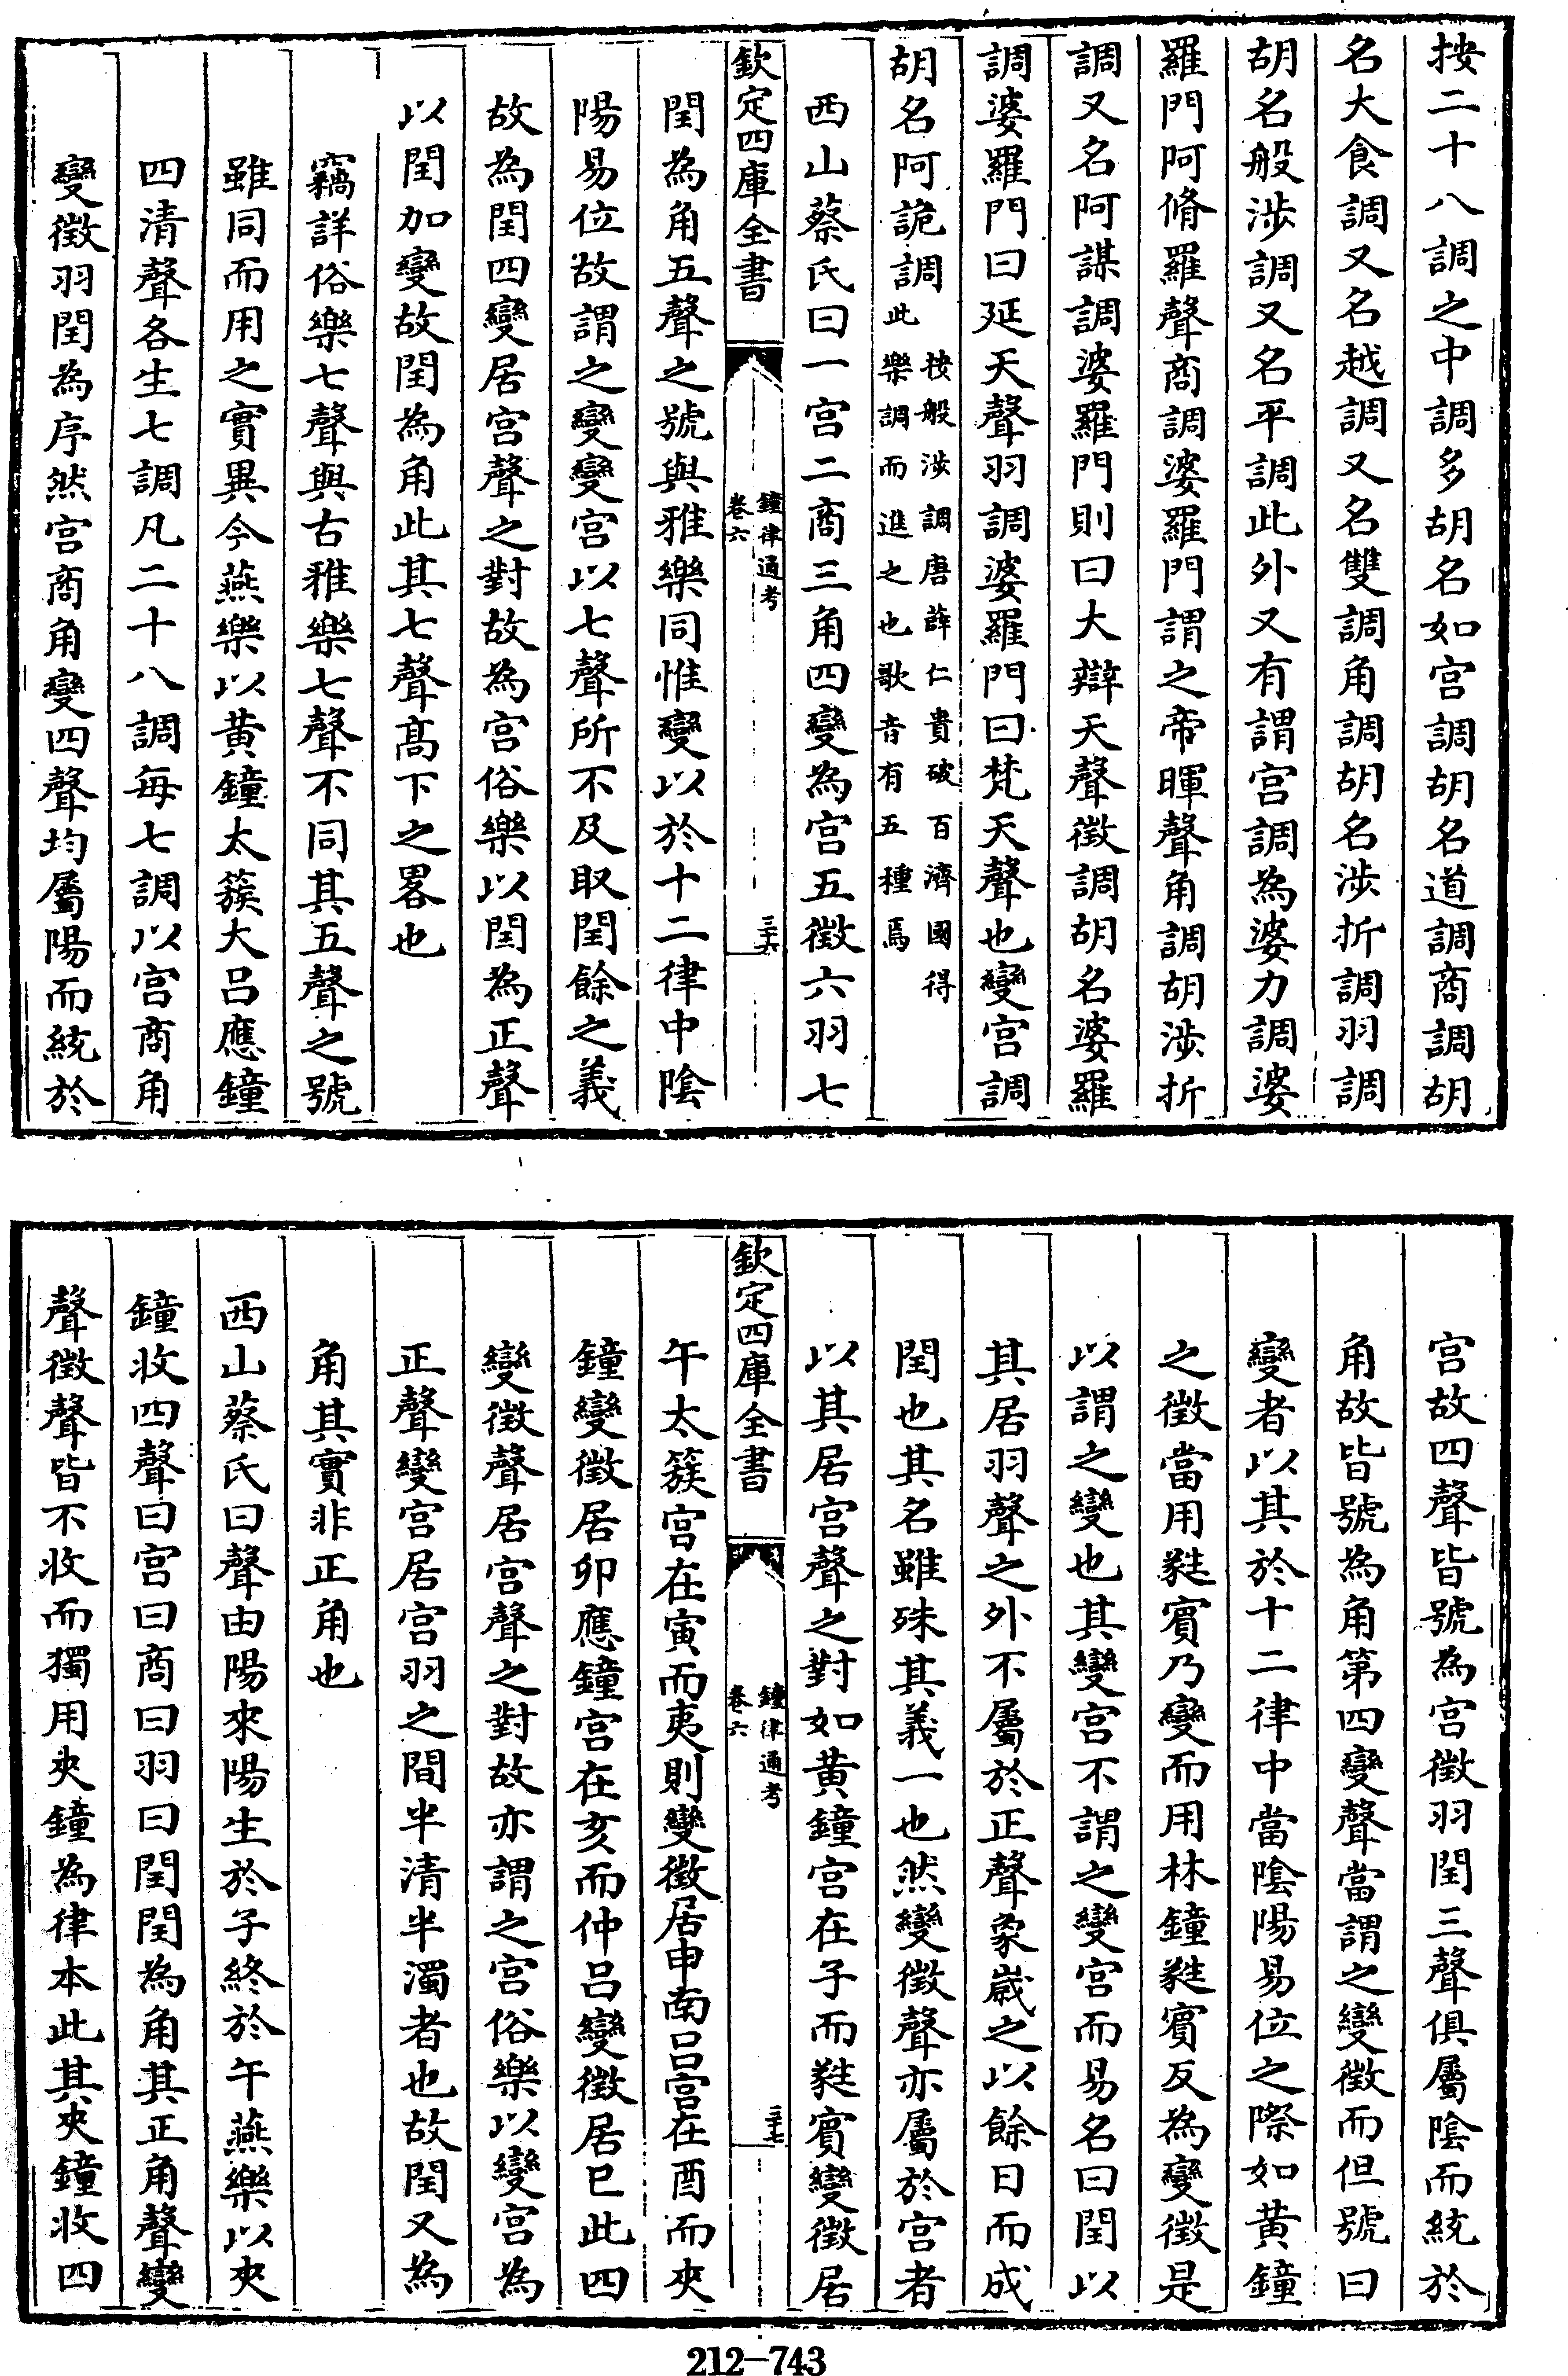 按二十八調之中調多胡名如宫調胡名道調商調胡
名大食調又名越調又名雙調角調胡名涉折調羽調
胡名般涉調又名平調此外又有謂宫調為婆力調婆
羅門阿脩羅聲商調婆羅門謂之帝暉聲角調胡涉折
調又名阿謀調婆羅門則曰大辯天聲徴調胡名婆羅
調婆羅門曰延天聲羽調婆羅門曰梵天聲也變宫調
胡名阿詭調此
按般涉調唐薛仁貴破百濟國得
樂調而進之也歌音有五種焉
西山蔡氏曰一宫二商三角四變為宫五徴六羽七
欽定四庫全書
鐘律通考
卷六
三十六
閏為角五聲之號與雅樂同惟變以於十二律中陰
陽易位故謂之變變宫以七聲所不及取閏餘之義
故為閏四變居宫聲之對故為宫俗樂以閏為正聲
以閏加變故閏為角此其七聲髙下之畧也
竊詳俗樂七聲與古雅樂七聲不同其五聲之號
雖同而用之實異今燕樂以黄鐘太簇大吕應鐘
四清聲各生七調凡二十八調每七調以宫商角
變徴羽閏為序然宫商角變四聲均屬陽而統於
宫故四聲皆號為宫徴羽閏三聲俱屬陰而統於
角故皆號為角第四變聲當謂之變徴而但號曰
變者以其於十二律中當陰陽易位之際如黄鐘
之徴當用蕤賔乃變而用林鐘蕤賔反為變徴是
以謂之變也其變宫不謂之變宫而易名曰閏以
其居羽聲之外不屬於正聲象嵗之以餘日而成
閏也其名雖殊其義一也然變徴聲亦屬於宫者
以其居宫聲之對如黄鐘宫在子而蕤賔變徴居
欽定四庫全書
鐘律通考
卷六
三十七
午太簇宫在寅而夷則變徴居申南吕宫在酉而夾
鐘變徴居卯應鐘宫在亥而仲吕變徴居巳此四
變徴聲居宫聲之對故亦謂之宫俗樂以變宫為
正聲變宫居宫羽之間半清半濁者也故閏又為
角其實非正角也
西山蔡氏曰聲由陽來陽生於子終於午燕樂以夾
鐘收四聲曰宫曰商曰羽曰閏閏為角其正角聲變
聲徴聲皆不收而獨用夾鐘為律本此其夾鐘收四
212—743